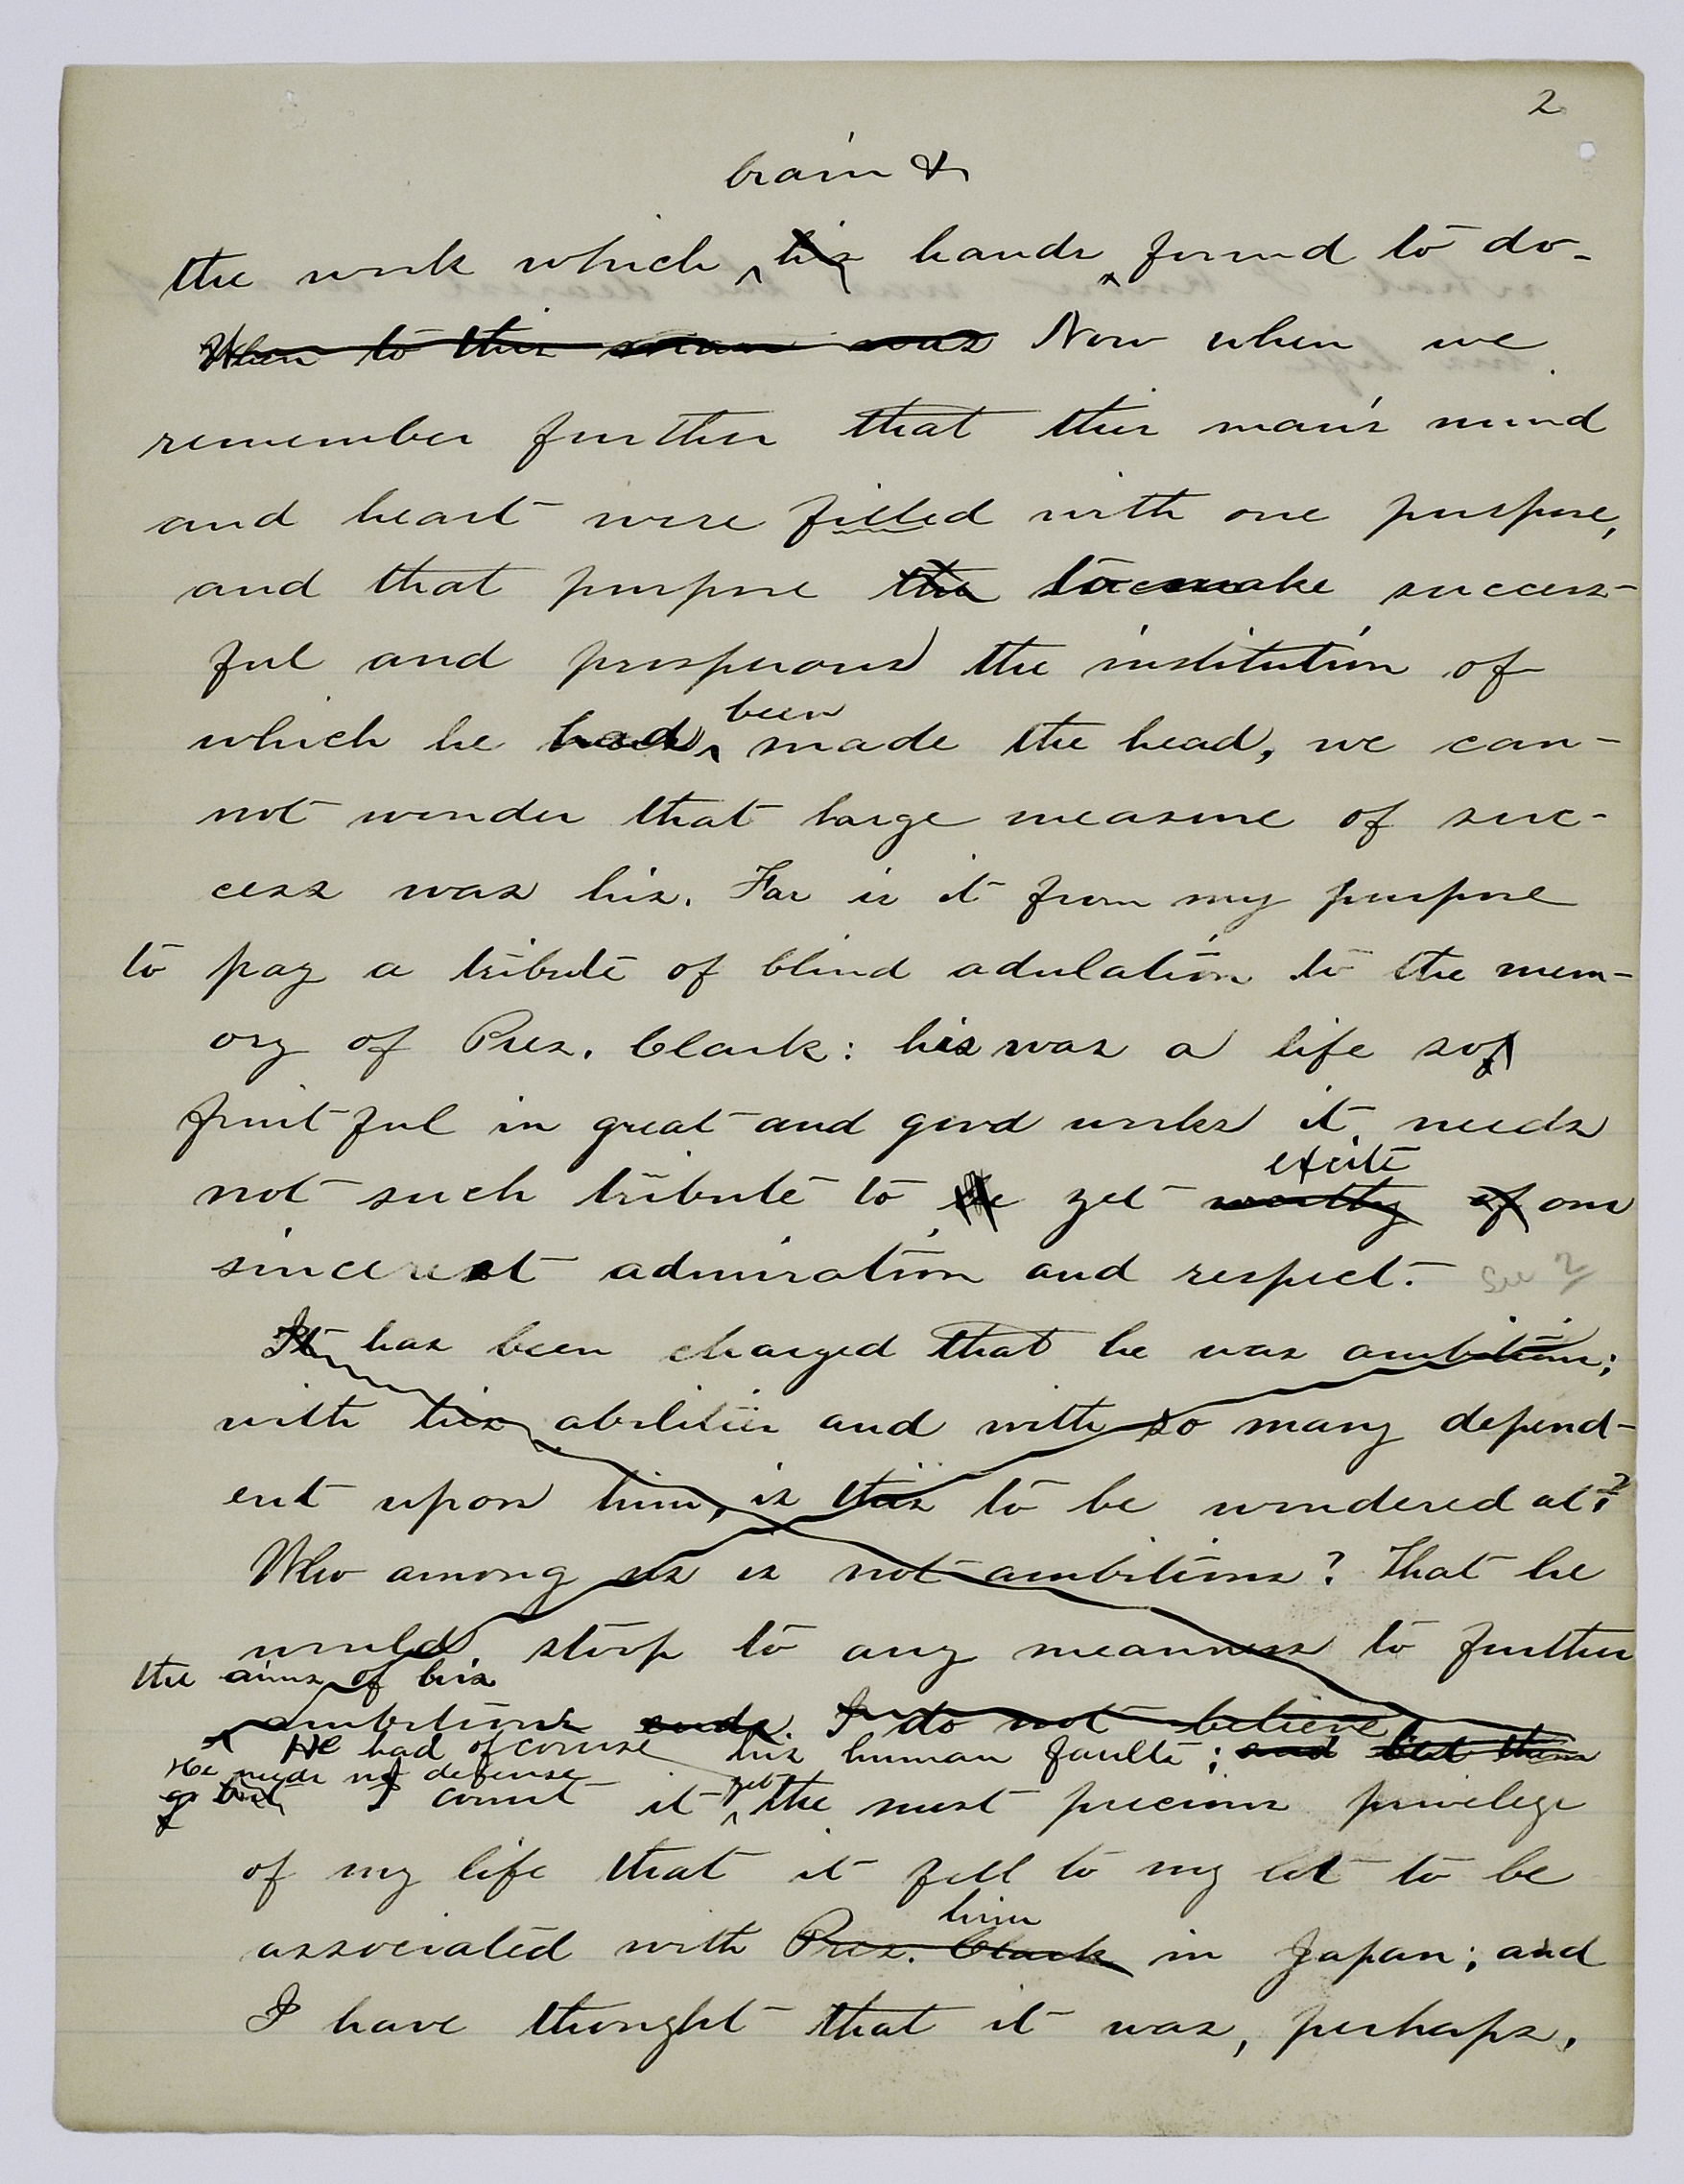 2
brain &
the work which his hands found to do-
When to this man was Now when we
remember further that this man's mind
and heart were filled with one purpose,
and that purpose the to make success-
ful and prosperous the institution of
been
which he had made the head, we can-
not wonder that large measure of suc-
cess was his. Far is it from my purpose
to pay a tribute of blind adulation to the mem-
ory of Pres. Clark: his was a life so
fruitful in great and good works it needs
excite
not such tribute to yet worthy of our
sincerest admiration and respect. See 2
It has been charged that he was ambitious;
with his abilities and with so many depend-
ent upon him, is this to be wondered at?
Who among us is not ambitious? That he
would stoop to any meanness to further
the aims of his
ambitions ends. I do not believe
He had of course his human faults; and let them
He needs no defense yet
go but I count it the most precious privilege
of my life that it fell to my lot to be
him
associated with Pres. Clark in Japan; and
I have thought that it was, perhaps,